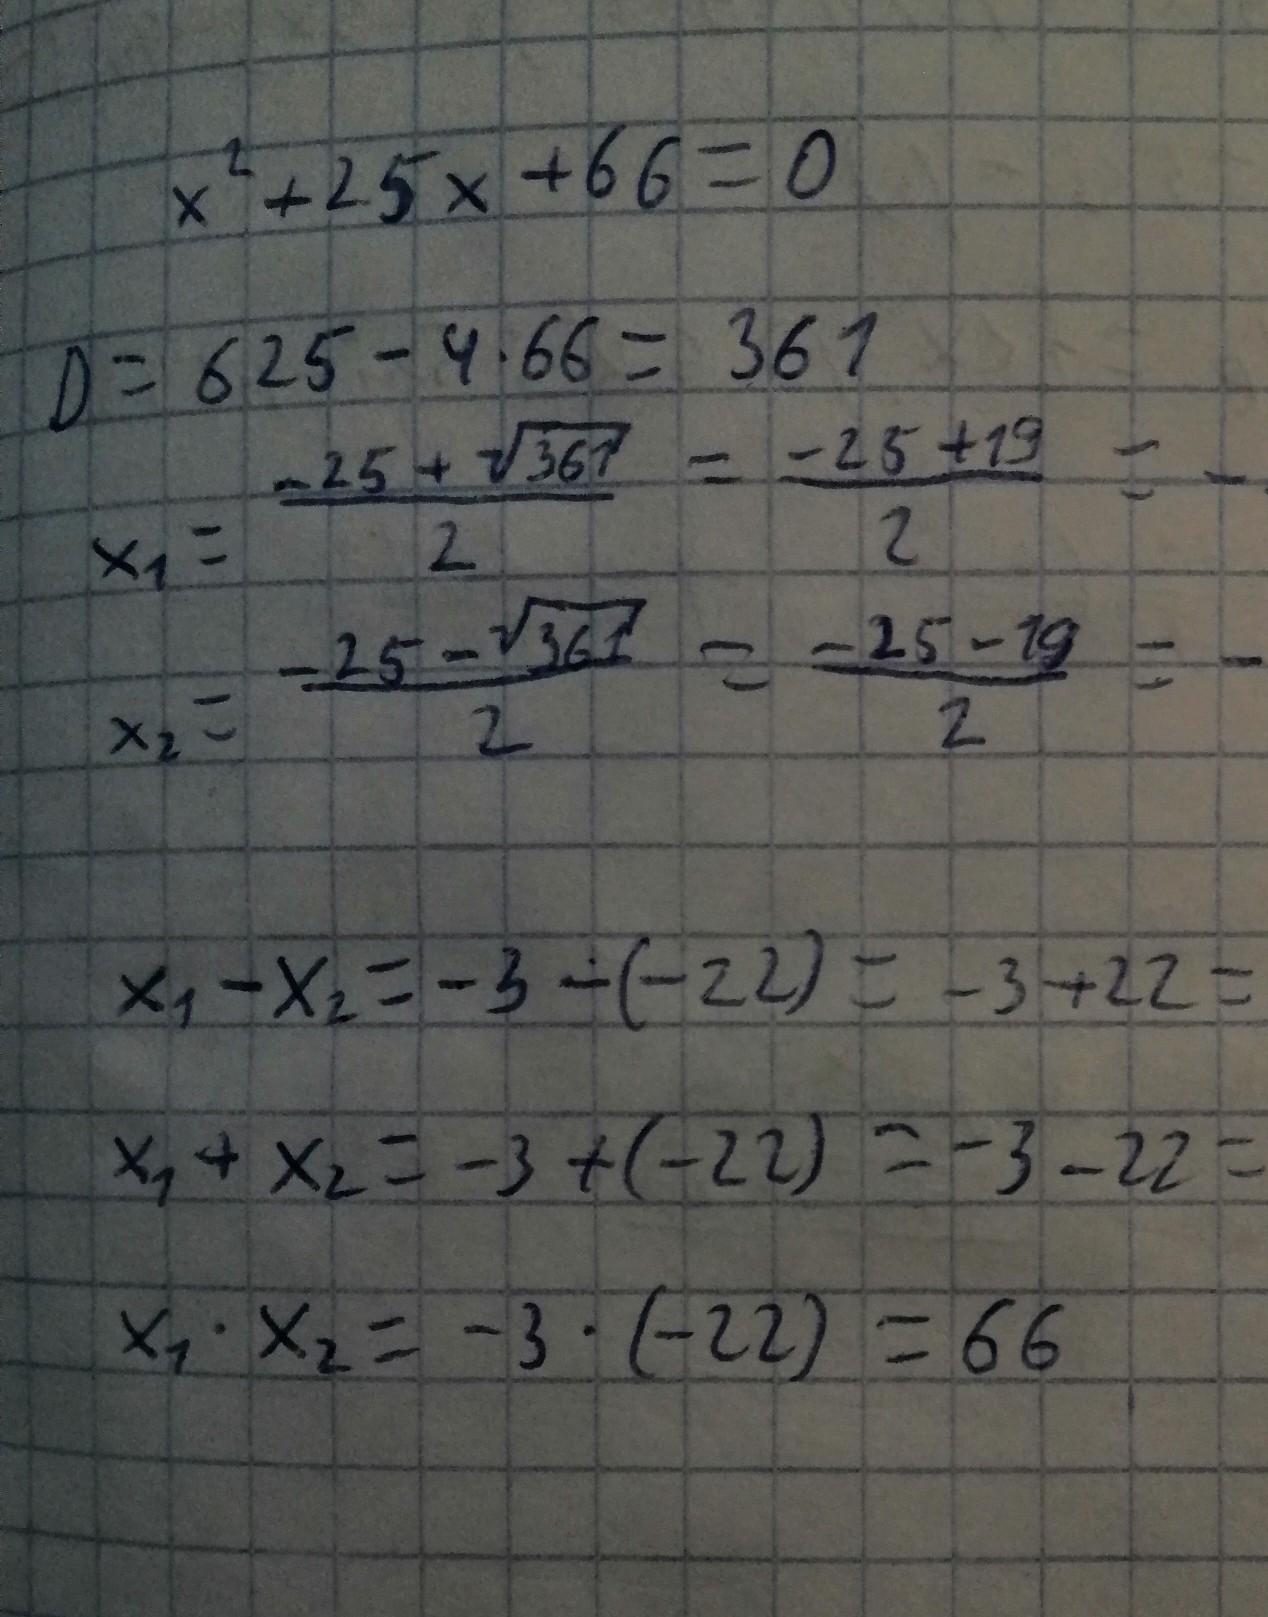 x² + 25x + 66 = 0
D = 625 - 4·66 = 361
x₁ = (-25 + √361)/2 = (-25 + 19)/2 = -
x₂ = (-25 - √361)/2 = (-25 - 19)/2 = -
x₁ - x₂ = -3 - (-22) = -3 + 22 =
x₁ + x₂ = -3 + (-22) = -3 - 22 =
x₁ · x₂ = -3 · (-22) = 66